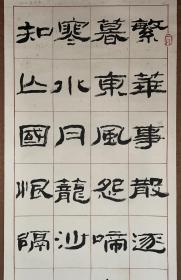 繁華事散逐
暮東風怨啼
寒水月籠沙
扣亡國恨隔